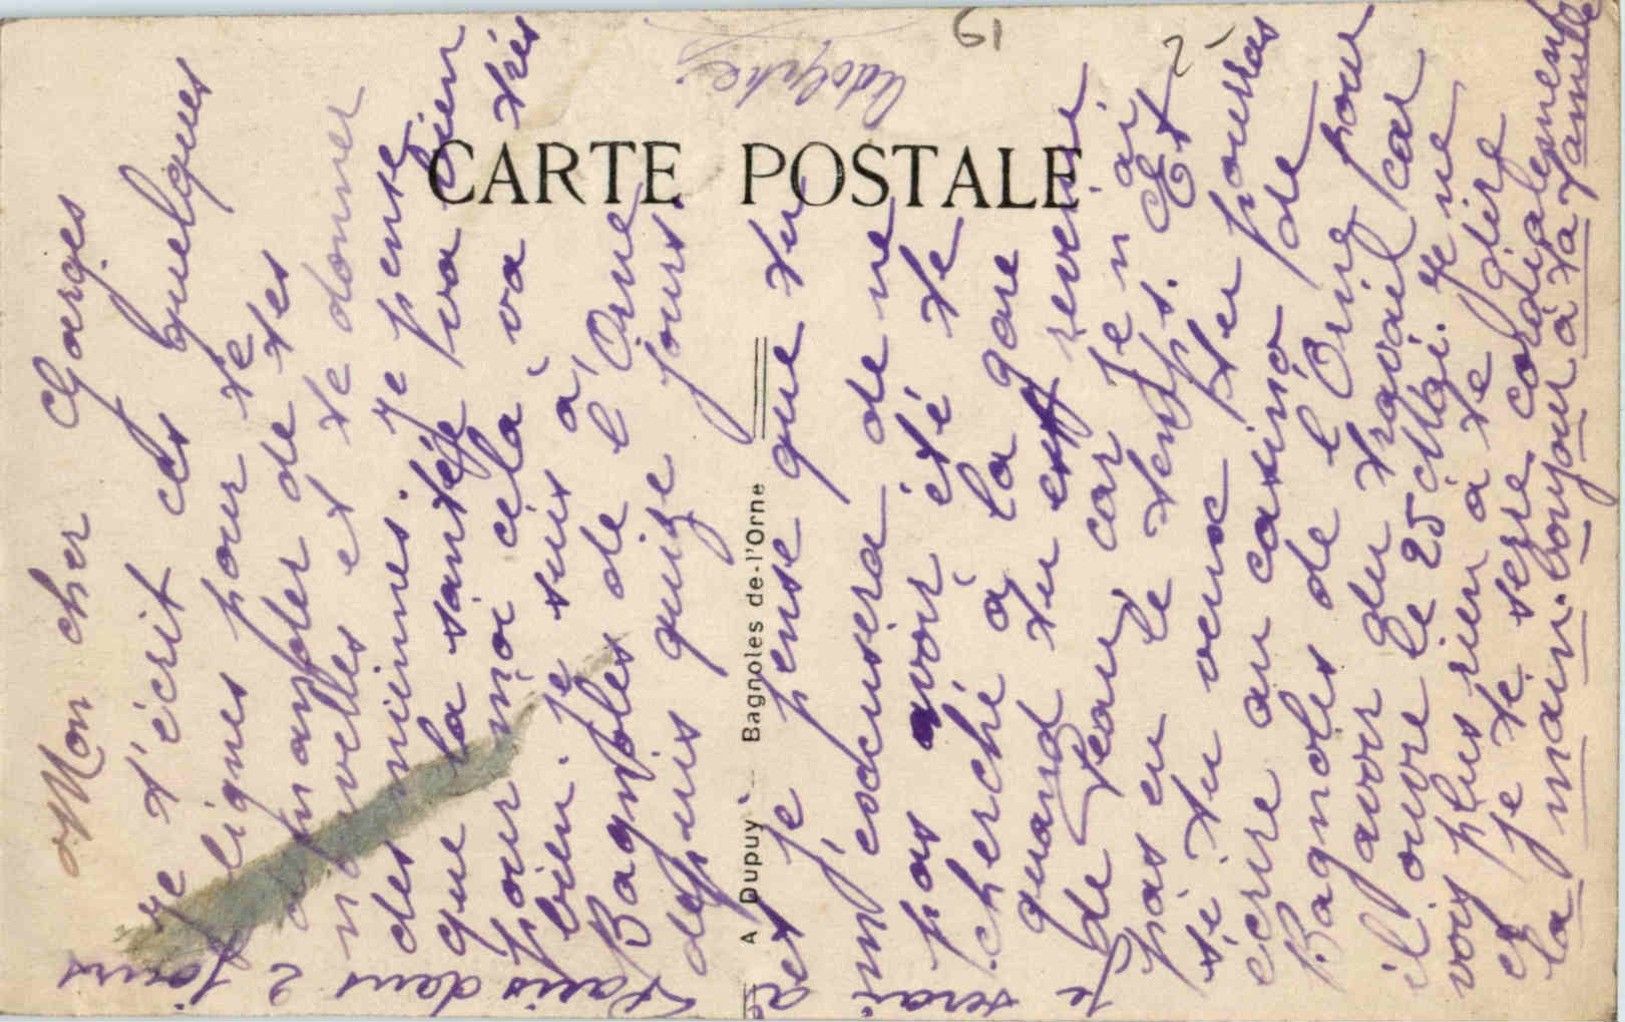 CARTE POSTALE
A Dupuy - Bagnoles de-l'Orne
61
2
Adolphe
Mon cher Georges
Je t'écrit ces quelques
lignes pour te
demander de tes
nouvelles et te donner
des miennes. Je pense
que la santée va bien
pour moi cela va très
bien. Je suis à
Bagnoles de l'Orne
depuis quize jours.
et je pense que tu
m'excusera de ne
pas avoir été te
cherché à la gare
quand tu est revenu
de Peau car je n'ai
pas eu le temps. Et
si tu veux tu pourras
écrire au casino de
Bagnoles de l'Orne pour
avoir du travail car
il ouvre le 25 Mai. Je ne
vois plus rien a te dire
et je te serre cordialement
la main. bonjour à ta famille
Je serai à
Paris dans 2 jours